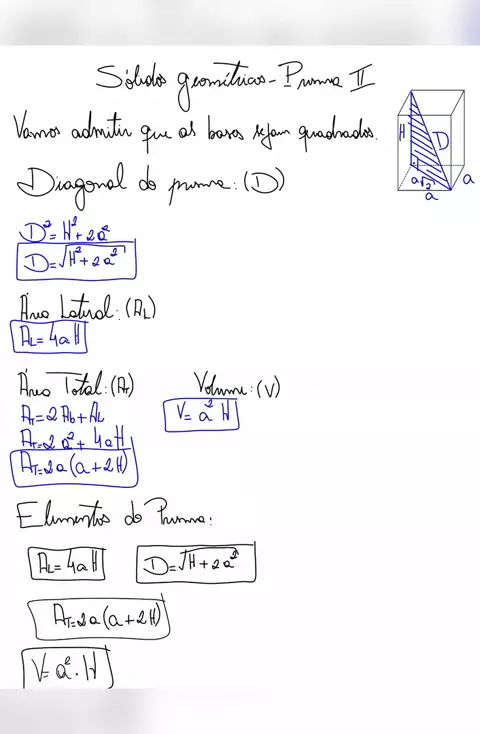 Sólidos geométricos - Prisma II
Vamos admitir que as bases sejam quadrados.
H
D
a√2
a
a
Diagonal do prisma: (D)
D² = H² + 2a²
D = √H² + 2a²
Área Lateral: (AL)
AL = 4aH
Área Total: (AT)
Volume: (V)
AT = 2Ab + AL
V = a² H
AT = 2a² + 4aH
AT = 2a(a + 2H)
Elementos do Prisma:
AL = 4aH
D = √H + 2a²
AT = 2a(a + 2H)
V = a² . H